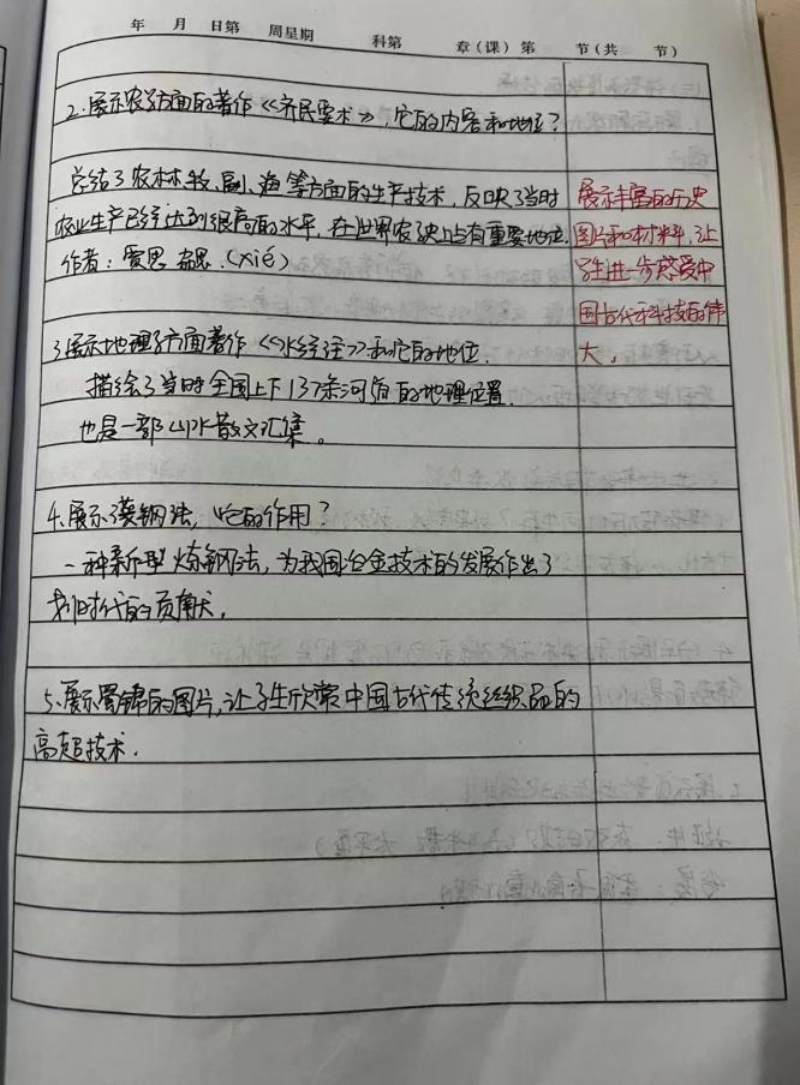 年 月 日第 周星期 科第 章(课)第 节(共 节)
2.展示农学方面的著作《齐民要术》,它的内容和地位?
总结了农林、牧、副、渔等方面的生产技术,反映了当时
农业生产已经达到很高的水平,在世界农史上占有重要地位.
作者:贾思勰.(xié)
展示丰富的历史
图片和材料,让
学生进一步感受中
国古代科技的伟
大。
3.展示地理学方面著作《水经注》和它的地位.
描绘了当时全国上下137条河道的地理位置.
也是一部山水散文汇集。
4.展示灌钢法,它的作用?
一种新型炼钢法,为我国冶金技术的发展作出了
划时代的贡献.
5.展示蜀锦的图片,让学生欣赏中国古代传统丝织品的
高超技术.